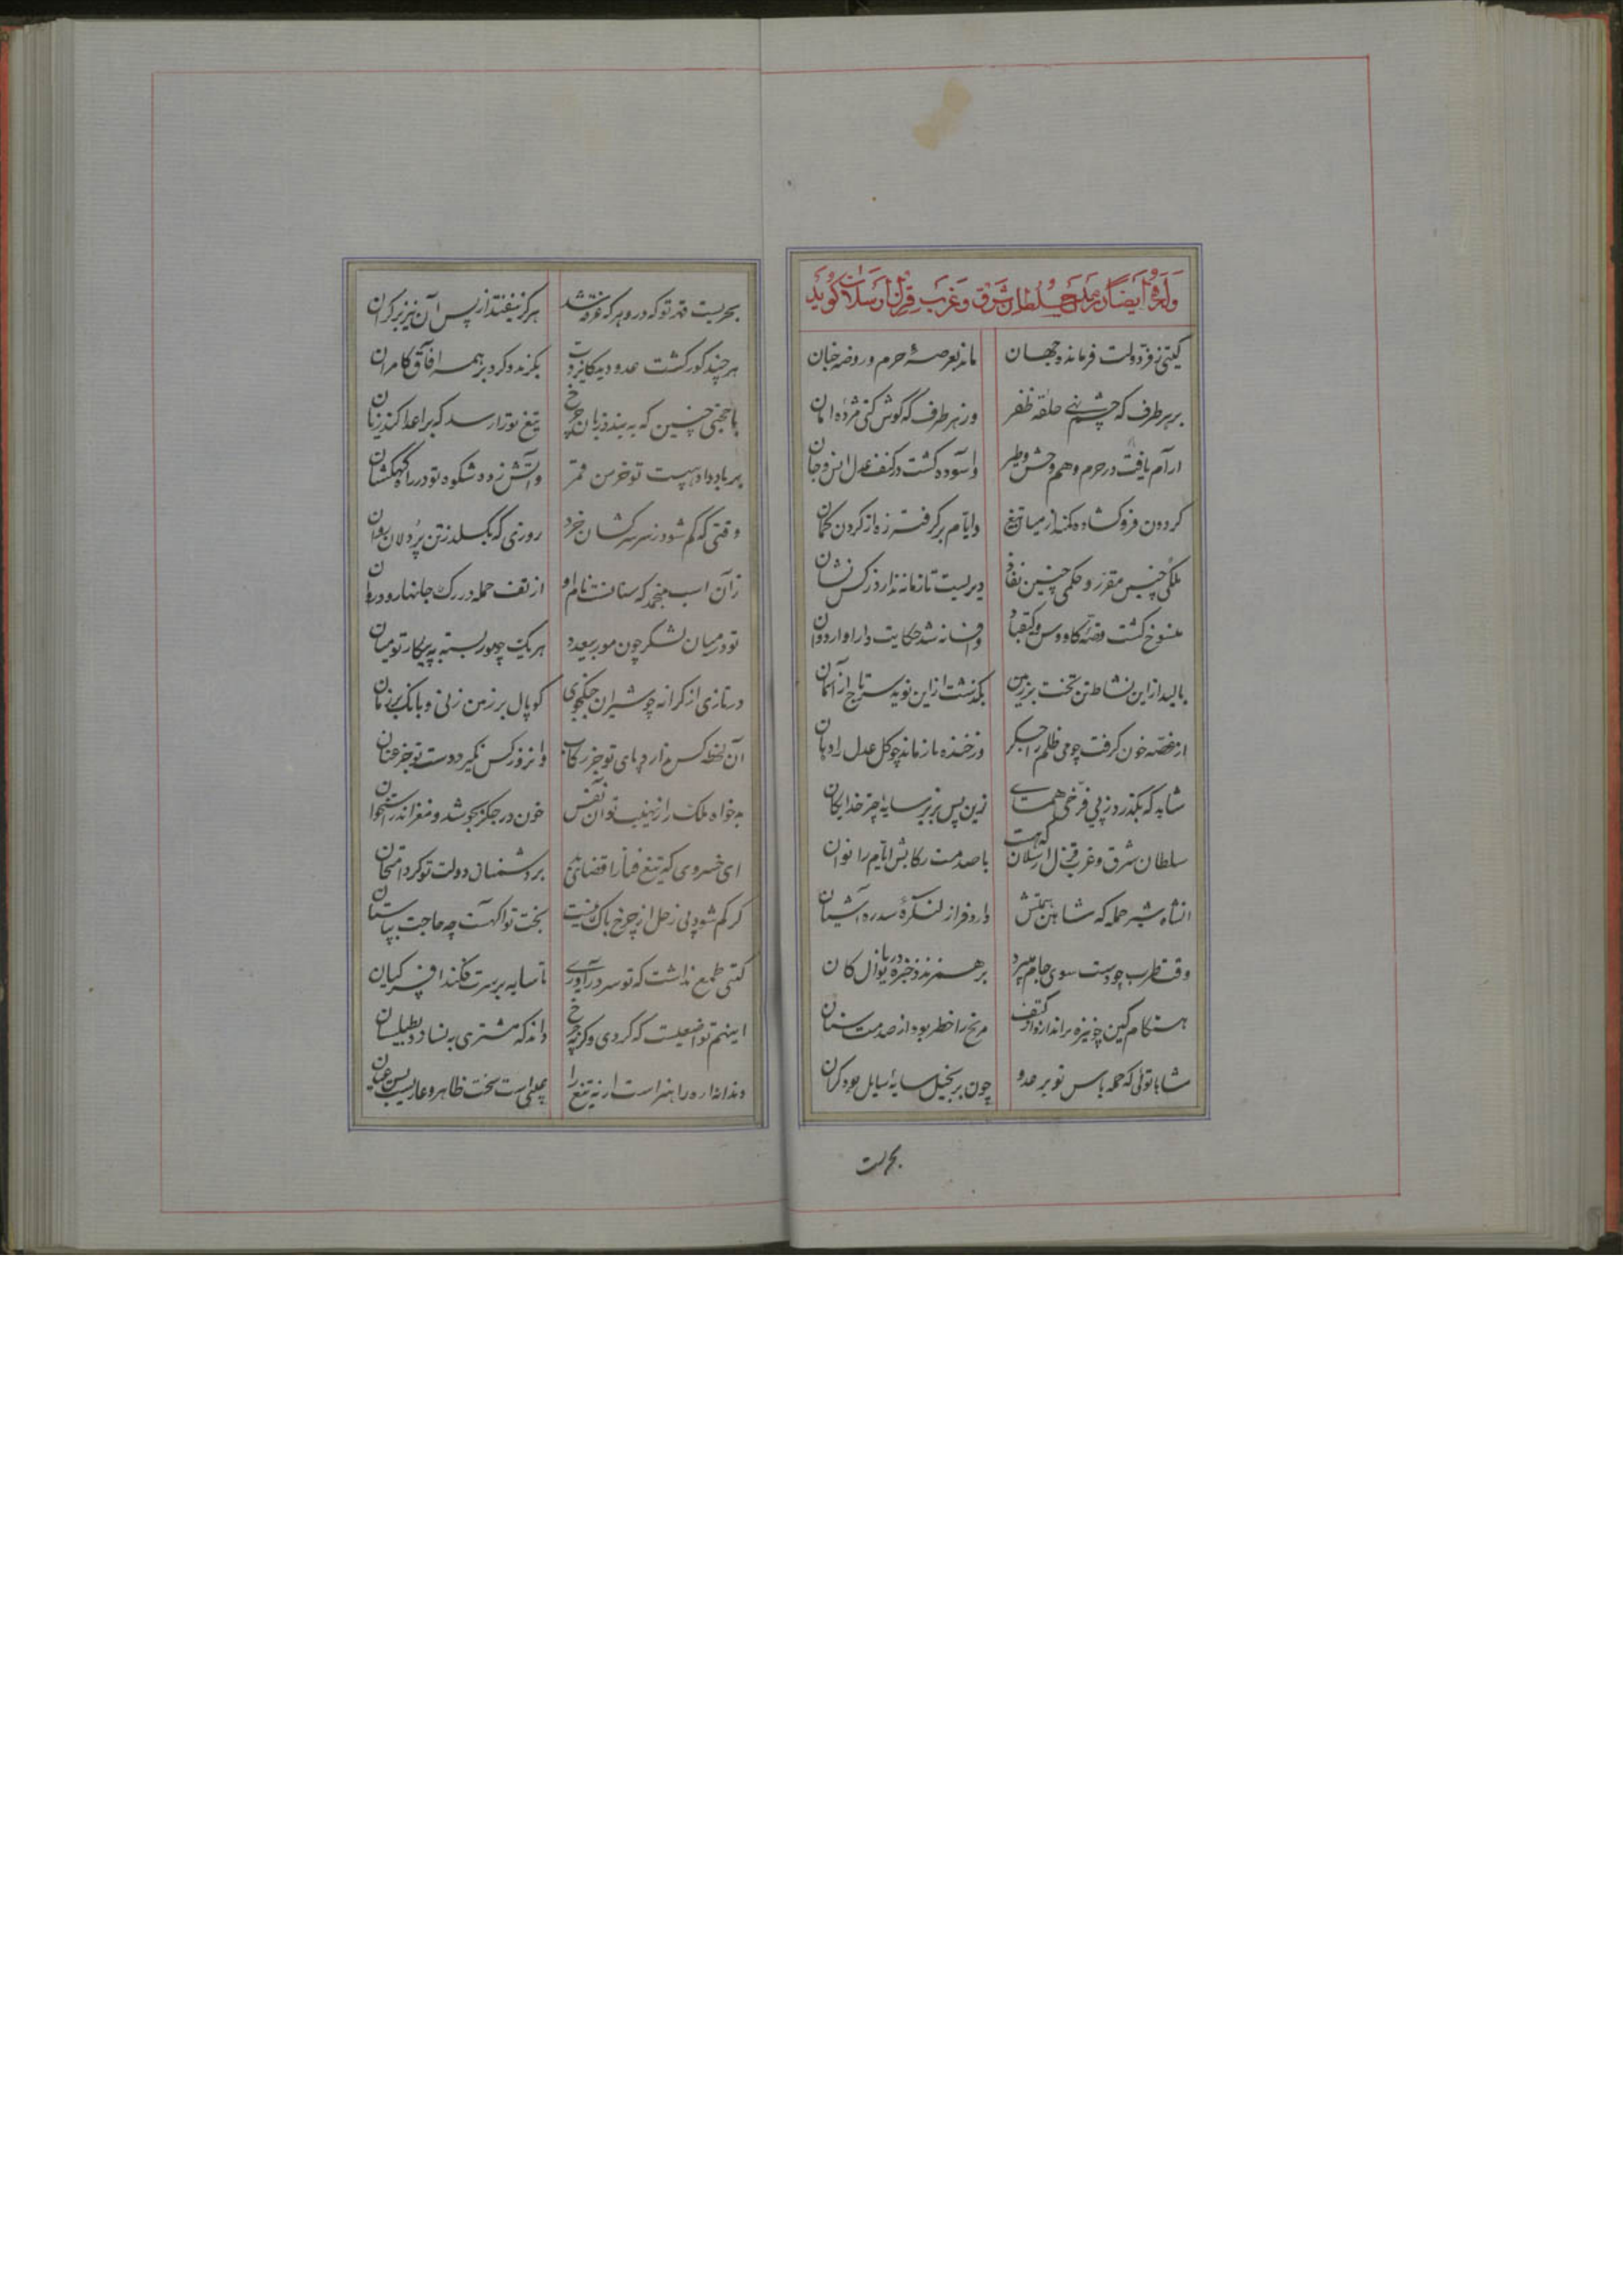 وله ایضاً در مدح سلطان شرق و غرب قزل ارسلان گوید
گیتی ز فرّ دولت فرمانده جهان ماند بعرصهٔ حرم و روضه جنان
بر هر طرف که چشم نهی جلوهٔ ظفر وز هر طرف که گوش کنی مژدهٔ امان
آرام یافت در حرم وهم وحش و طیر و آسوده گشت در کنف عدل انس و جان
گردون فرو گشاده کمند از میان تیغ و ایام بر گرفته زه از گردن کمان
ملکی چنین مقرر و حکمی چنین نفاذ دیریست تا زمانه ندارد ز کس نشان
منسوخ گشت قصهٔ کاووس و کیقباد و افسانه شد حکایت دارا و اردوان
بالید ازین نشاط تن تخت بر زمین بگذشت از این نوید سر تاج از آسمان
از غصه خون گرفت چو می ظلم را جگر وز خنده باز ماند چو گل عدل را دهان
شاید که بگذرد ز پی فرخی همای زین پس بزیر سایهٔ چتر خدایگان
سلطان شرق و غرب قزل ارسلان که هست با صدمت رکابش ایام را توان
آنشاه شیر حمله که شاهین همتش دارد فراز کنگرهٔ سدره آشیان
وقت طرب چو دست سوی جام می‌برد بر هم زند ذخیرهٔ دریا و آن کان
هنگام کین چو نیزه براندازد از کتف مریخ را خطر بود از صدمت سنان
شاها توئی که حملهٔ باس تو بر عدو چون بر بخیل سایهٔ سایل بود گران
بحریست
بحریست قهر تو که درو هر که غرقه شد هرگز نیفتد از پس آن نیز بر کران
هر چند کور گشت عدو دید کایزدت بگزید و کرد بر همه آفاق کامران
با حجتی چنین که ببیند زبان چرخ تیغ تو را رسد که بر اعدا کند زبان
بر باد داد هیبت تو خرمن قمر و آتش زده شکوه تو در راه کهکشان
وقتی که گم شود ز سر سرکشان خرد روزی که بگسلد ز تن پر دلان روان
زآن آب منجمد که سنانست نام او از تف حمله در رگ جانها رود روان
تو در میان لشکر چون مور بیعدد هر یک چو مور بسته به پیکار تو میان
در تازی از کرانه چو شیران جنگجوی کوپال بر زمین زنی و بانگ بر زمان
آن لحظه کس ندارد پای تو جز رکاب و آنروز کس نگیرد دست تو جز عنان
بدخواه ملک را ز نهیب تو آن نفس خون در جگر بجوشد و مغز اندر استخوان
ای خسروی که تیغ فنا را قضای بد بر دشمنان دولت تو کرد امتحان
گر گم شود پی زحل از چرخ باک نیست بخت تو آگهست چه حاجت بپاسبان
گیتی طمع نداشت که تو سر درآوری تا سایه بر سرت فکند افسر کیان
اینهم تواضعیست که کردی و گرنه چرخ داند که مشتری بنسازد بطیلسان
دندانهٔ اره را هنر است ارنه تیغ را عیبی است سخت ظاهر و عاریست بس عیان